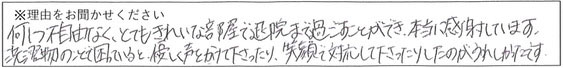 ※理由をお聞かせください
何1つ不自由なく、とてもきれいな部屋で退院まで過ごすことができ、本当に感謝しています。
洗濯物のことで困っていると、優しく声をかけて下さったり、笑顔で対応して下さったりしたのがうれしかったです。